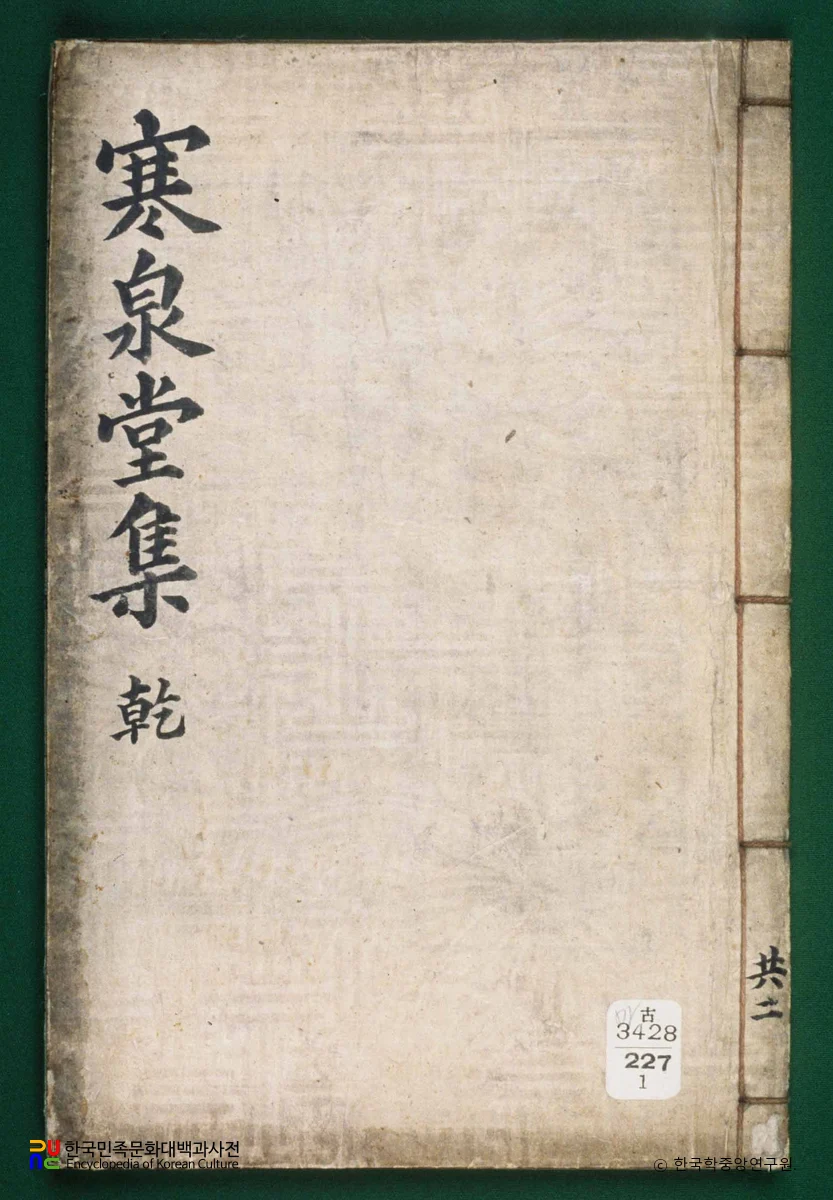 寒泉堂集 乾
共二
古
3428
227
1
한국민족문화대백과사전
Encyclopedia of Korean Culture
© 한국학중앙연구원